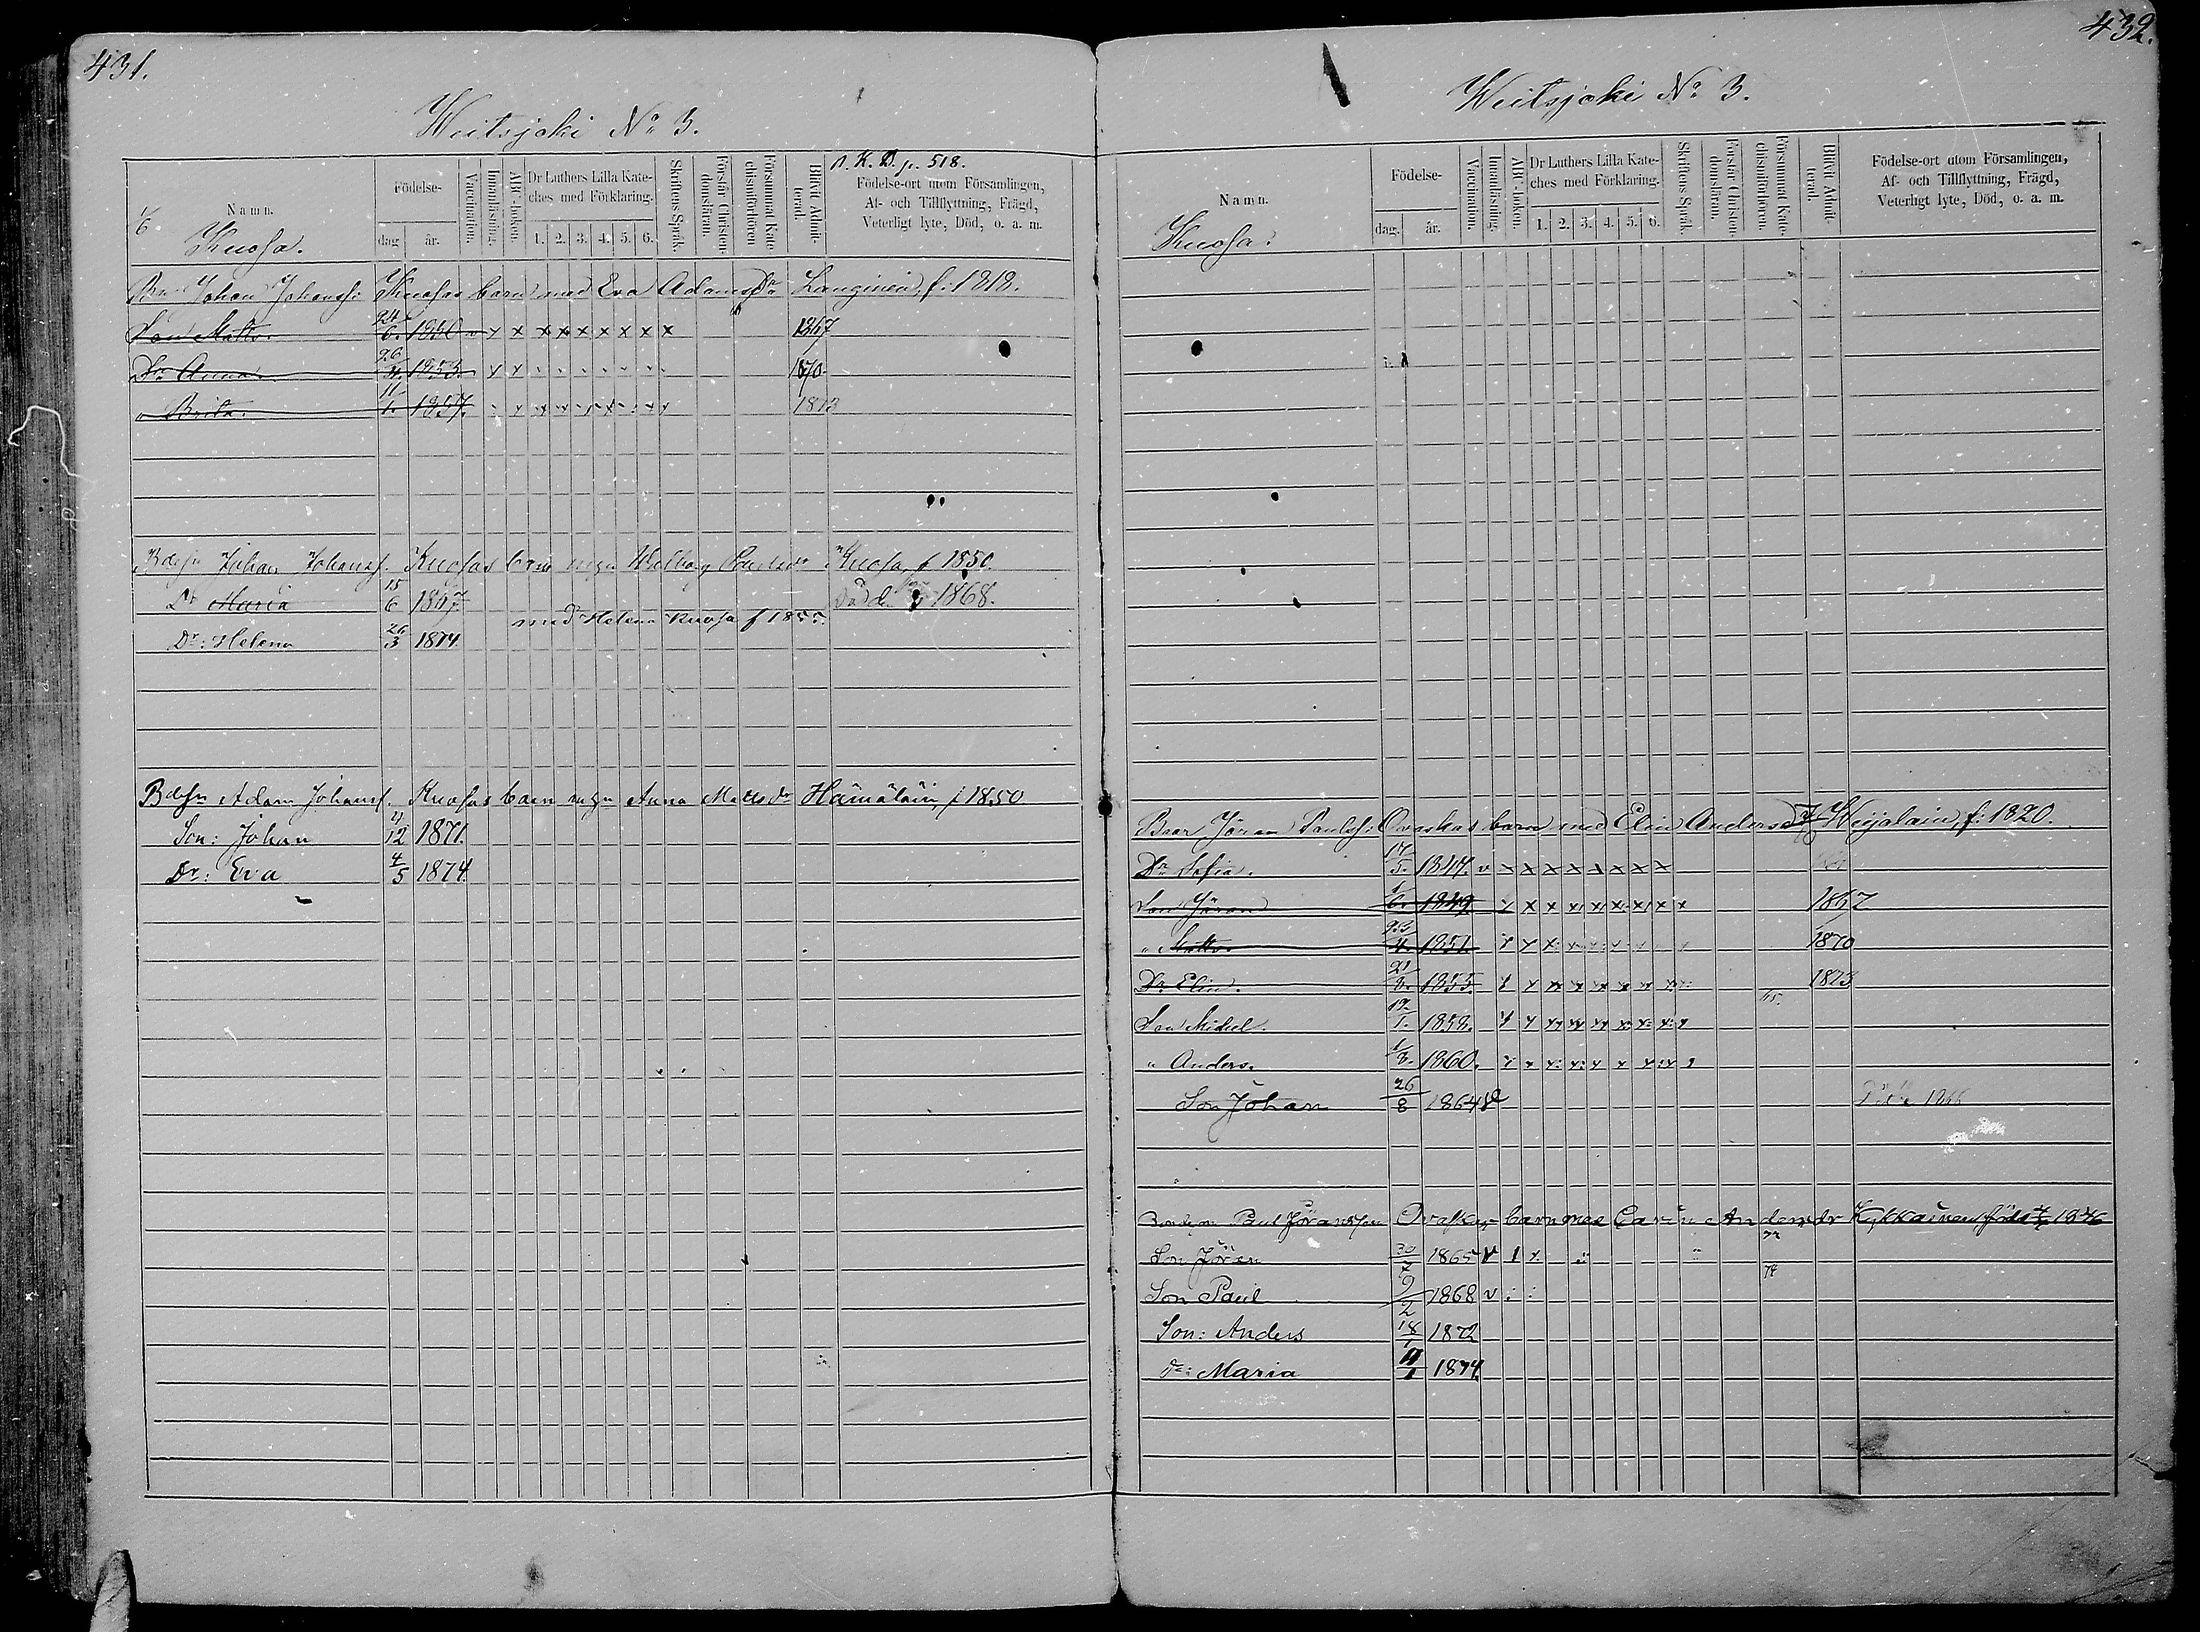 431.
Weitsjoki No 3.
N. K. B. p. 518.
Namn.
Födelse-
dag
år.
Vaccination.
Innanläsning.
ABC-boken.
Dr Luthers Lilla Kate-
ches med Förklaring.
1. 2. 3. 4. 5. 6.
Skriftens Språk.
Förstår Christen-
domsläran.
Försummat Kate-
chismiförhören
Blifvit Admit-
terad.
Födelse-ort utom Församlingen,
Af- och Tillflyttning, Frägd,
Veterligt lyte, Död, o. a. m.
1/6.
Knosa.
Johan Johanss: Knosas barn med Eva Adamsdr Langinen, f: 1818.
Son Matts. 24/6. 1850 v y x x x x x x x x x 1867
Dr Anna. 26/4. 1853. y y 1870.
" Brita. 11/1. 1857. 1873
Bdesn Johan Johanss. Knosas barn Walborg Paulsdr Knosa f 1850.
Dr Maria 15/6 1867 Död 1868.
med Helena Knosa f
Dr: Helena 26/3 1874.
Bdesn Adam Johanss. Knosas barn Anna Mattsdr Hämäläin f 1850
Son: Johan 4/12 1871.
Dr: Eva 4/5 1874.
432.
Weitsjoki No 3.
Namn.
Födelse-
dag.
år.
Vaccination.
Innanläsning.
ABC-boken.
Dr Luthers Lilla Kate-
ches med Förklaring.
1. 2. 3. 4. 5. 6.
Skriftens Språk.
Förstår Christen-
domsläran.
Försummat Kate-
chismiförhören.
Blifvit Admit-
terad.
Födelse-ort utom Församlingen,
Af- och Tillflyttning, Frägd,
Veterligt lyte, Död, o. a. m.
Knosa.
Jöran Paulss: Ovaskas barn med Elin Andersdr f: 1820.
Dr Sofia. 17/5. 1847. v x x x x x x x x
Son Jöran 1/6. 1849 1867
" Matts. 23/4. 1851 1870
Dr Elin. 21/8. 1855 1873
Son Mickel. 12/1. 1858.
" Anders. 1/3. 1860.
Son Johan 26/8 1864 Död 1866
Bondeson Paul Jöransson Ovaskas barn med Carin Andersdr Kykkainen född 1846
Son Jören 30/7 1865 v
74
Son Paul 9/2 1868 v
Son: Anders 18/1 1872
Dr: Maria 11/1 1874.